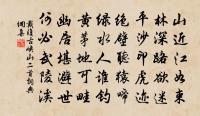 山近江如束
林深路欲迷
平沙印虎迹
絕壁聽猿啼
綠水人誰釣
黃茅地可畦
幽居堪避世
何必武陵溪
戴復古峽山二首詞典
網集